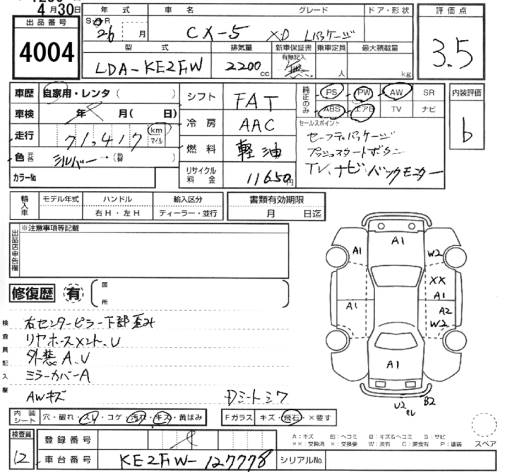 4月30日
出品番号
4004
年式
車名
グレード
ドア・形状
評価点
26 月
CX-5
XD Lパッケージ
3.5
型式
排気量
新車保証書
有無記入
乗車定員
最大積載量
LDA-KE2FW
2200 cc
無
人
kg
車歴
自家用・レンタ( )
シフト
FAT
純正のみ
PS
PW
AW
SR
内装評価
車検
年 月( 日)
ABS
エアB
TV
ナビ
b
走行
71,417
km
マイル
冷房
AAC
セールスポイント
セーフティパッケージ
プッシュスタートボタン
TV、ナビ、バックモニター
色
シルバー
(替)
燃料
軽油
カラーNo
リサイクル料金
11650円
輸入車
モデル年式
ハンドル
輸入区分
書類有効期限
右H・左H
ディーラー・並行
月 日迄
出品店申告欄
※注意事項等記載
修復歴
有
箇所
検査員記入欄
右センターピラー下部歪み
リヤホースメント、U
外装A、U
ミラーカバーA
AWキズ
Dシートシワ
A1
A1
W2
XX
A1
A1
A2
W2
A1
U2
B2
スペア
内装シート
穴・破れ・スレ・コゲ・汚れ・キズ・黄ばみ
Fガラス
キズ・飛石・X要す
検査員
12
登録番号
車台番号
KE2FW-127778
シリアルNo